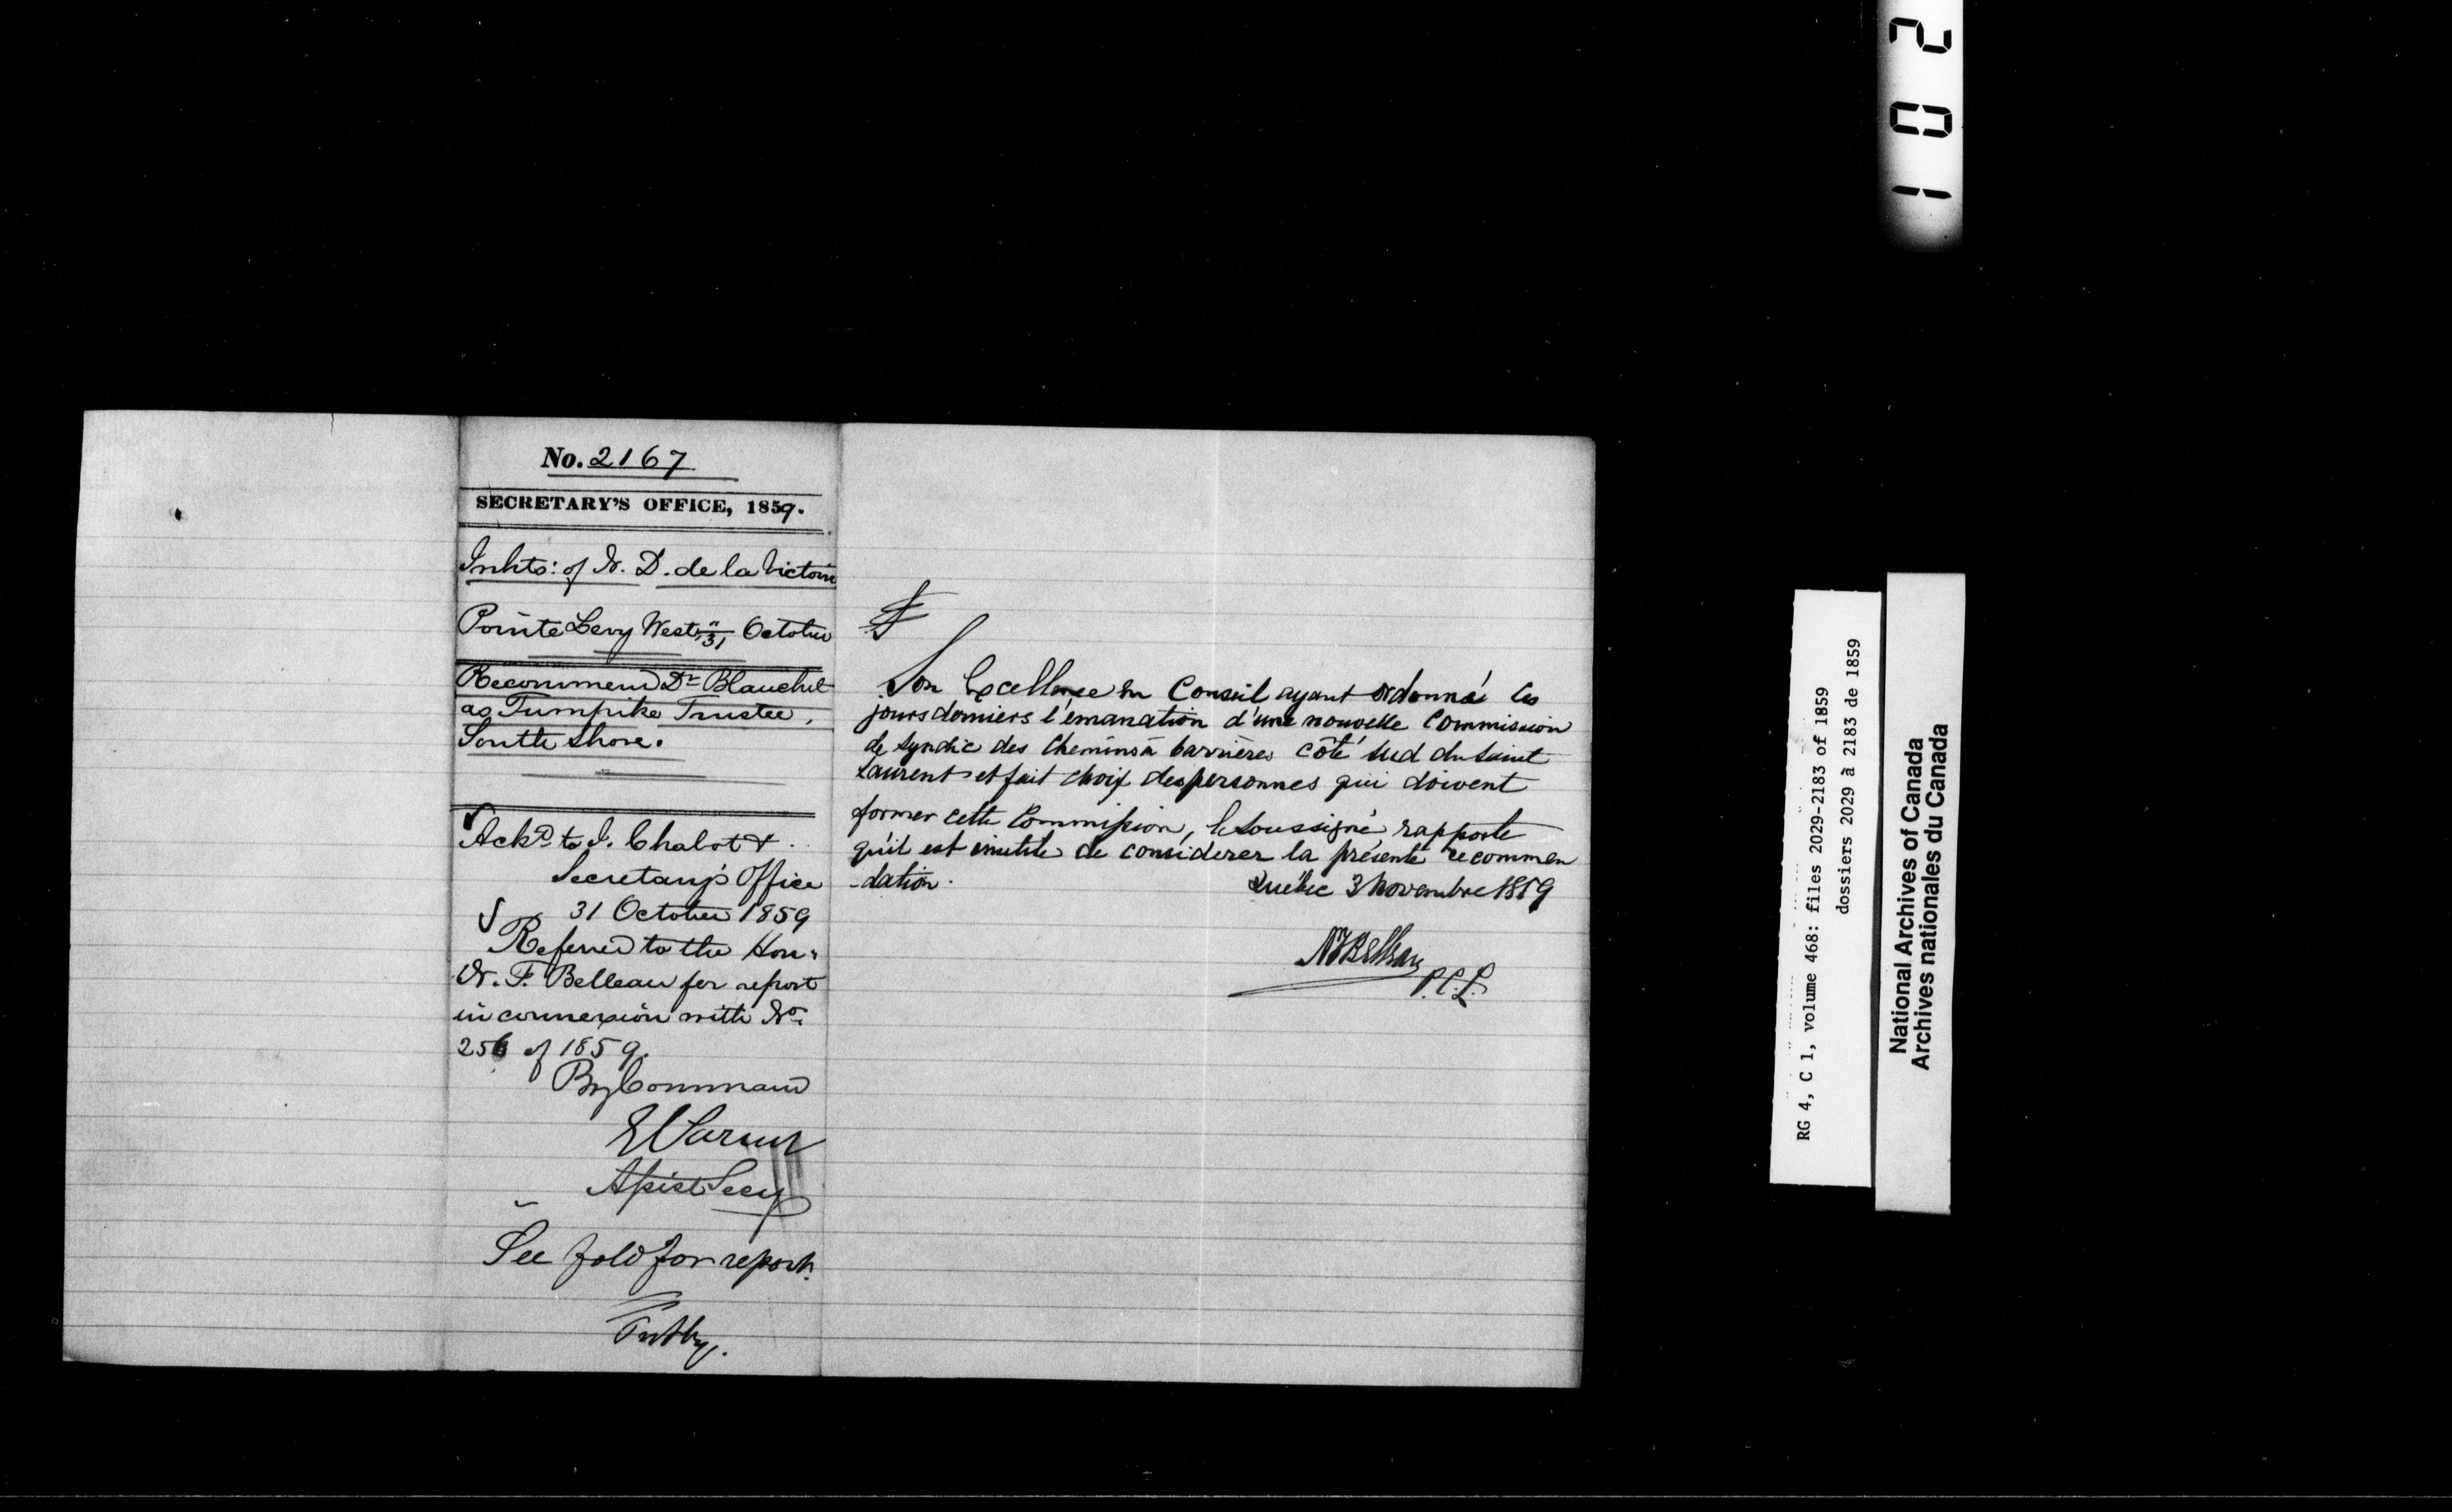 No. 2167
SECRETARY'S OFFICE, 1859.
Inhts: of N. D. de la Victoire
Pointe Levy West, 31 October
Recommend Dr Blanchet
as Turnpike Trustee,
South Shore.
Ackd to J. Chabot &
Secretary's Office
31 October 1859
Referred to the Hon:
N. F. Belleau for report
in connexion with No:
256 of 1859.
By Command
E Parent
Assist Secy
See fold for report.
Son Excellence en Conseil ayant ordonné ces
jours derniers l'émanation d'une nouvelle Commission
de Syndic des Chemins à barrières côté Sud du Saint
Laurent et fait choix des personnes qui doivent
former cette Commission, le soussigné rapporte
qu'il est inutile de considerer la présente recommen
-dation.
Québec 3 Novembre 1859
NFBelleau
P.C.L.
102
RG 4, C 1, volume 468: files 2029-2183 of 1859
dossiers 2029 à 2183 de 1859
National Archives of Canada
Archives nationales du Canada